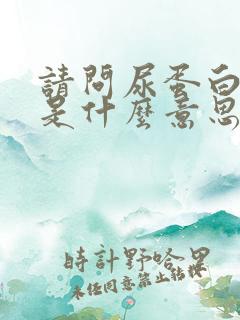 請問尿蛋白
是什麼意思
時計野哈里
未任同意禁止轉載